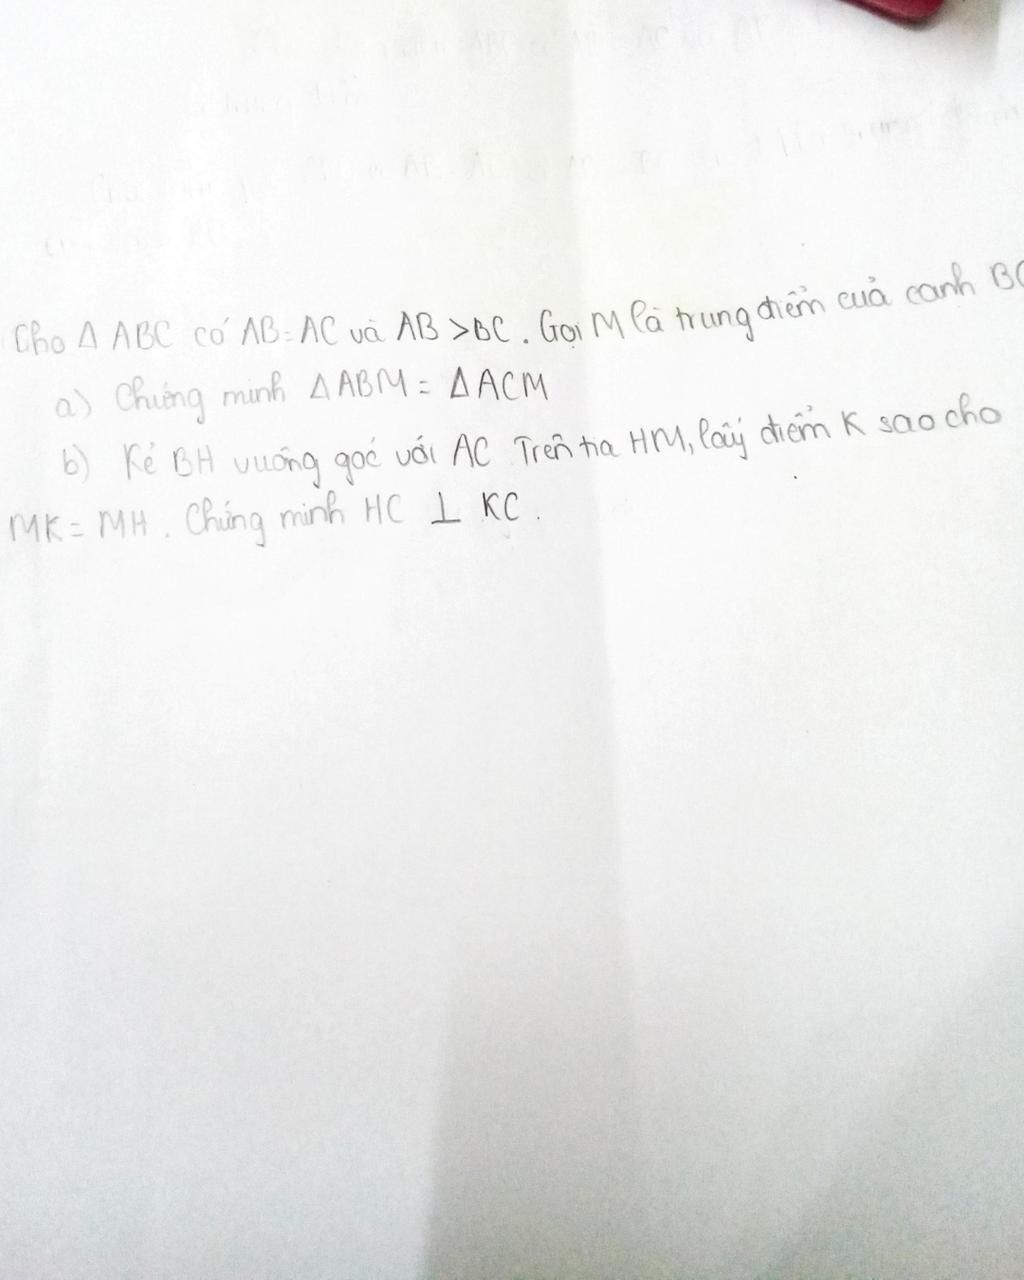 Cho Δ ABC có AB = AC và AB > BC. Gọi M là trung điểm cuả canh BC
a) Chứng minh Δ ABM = Δ ACM
b) Kẻ BH vuông goć với AC Trên tia HM, lấy điểm K sao cho
MK = MH. Chứng minh HC ⊥ KC.